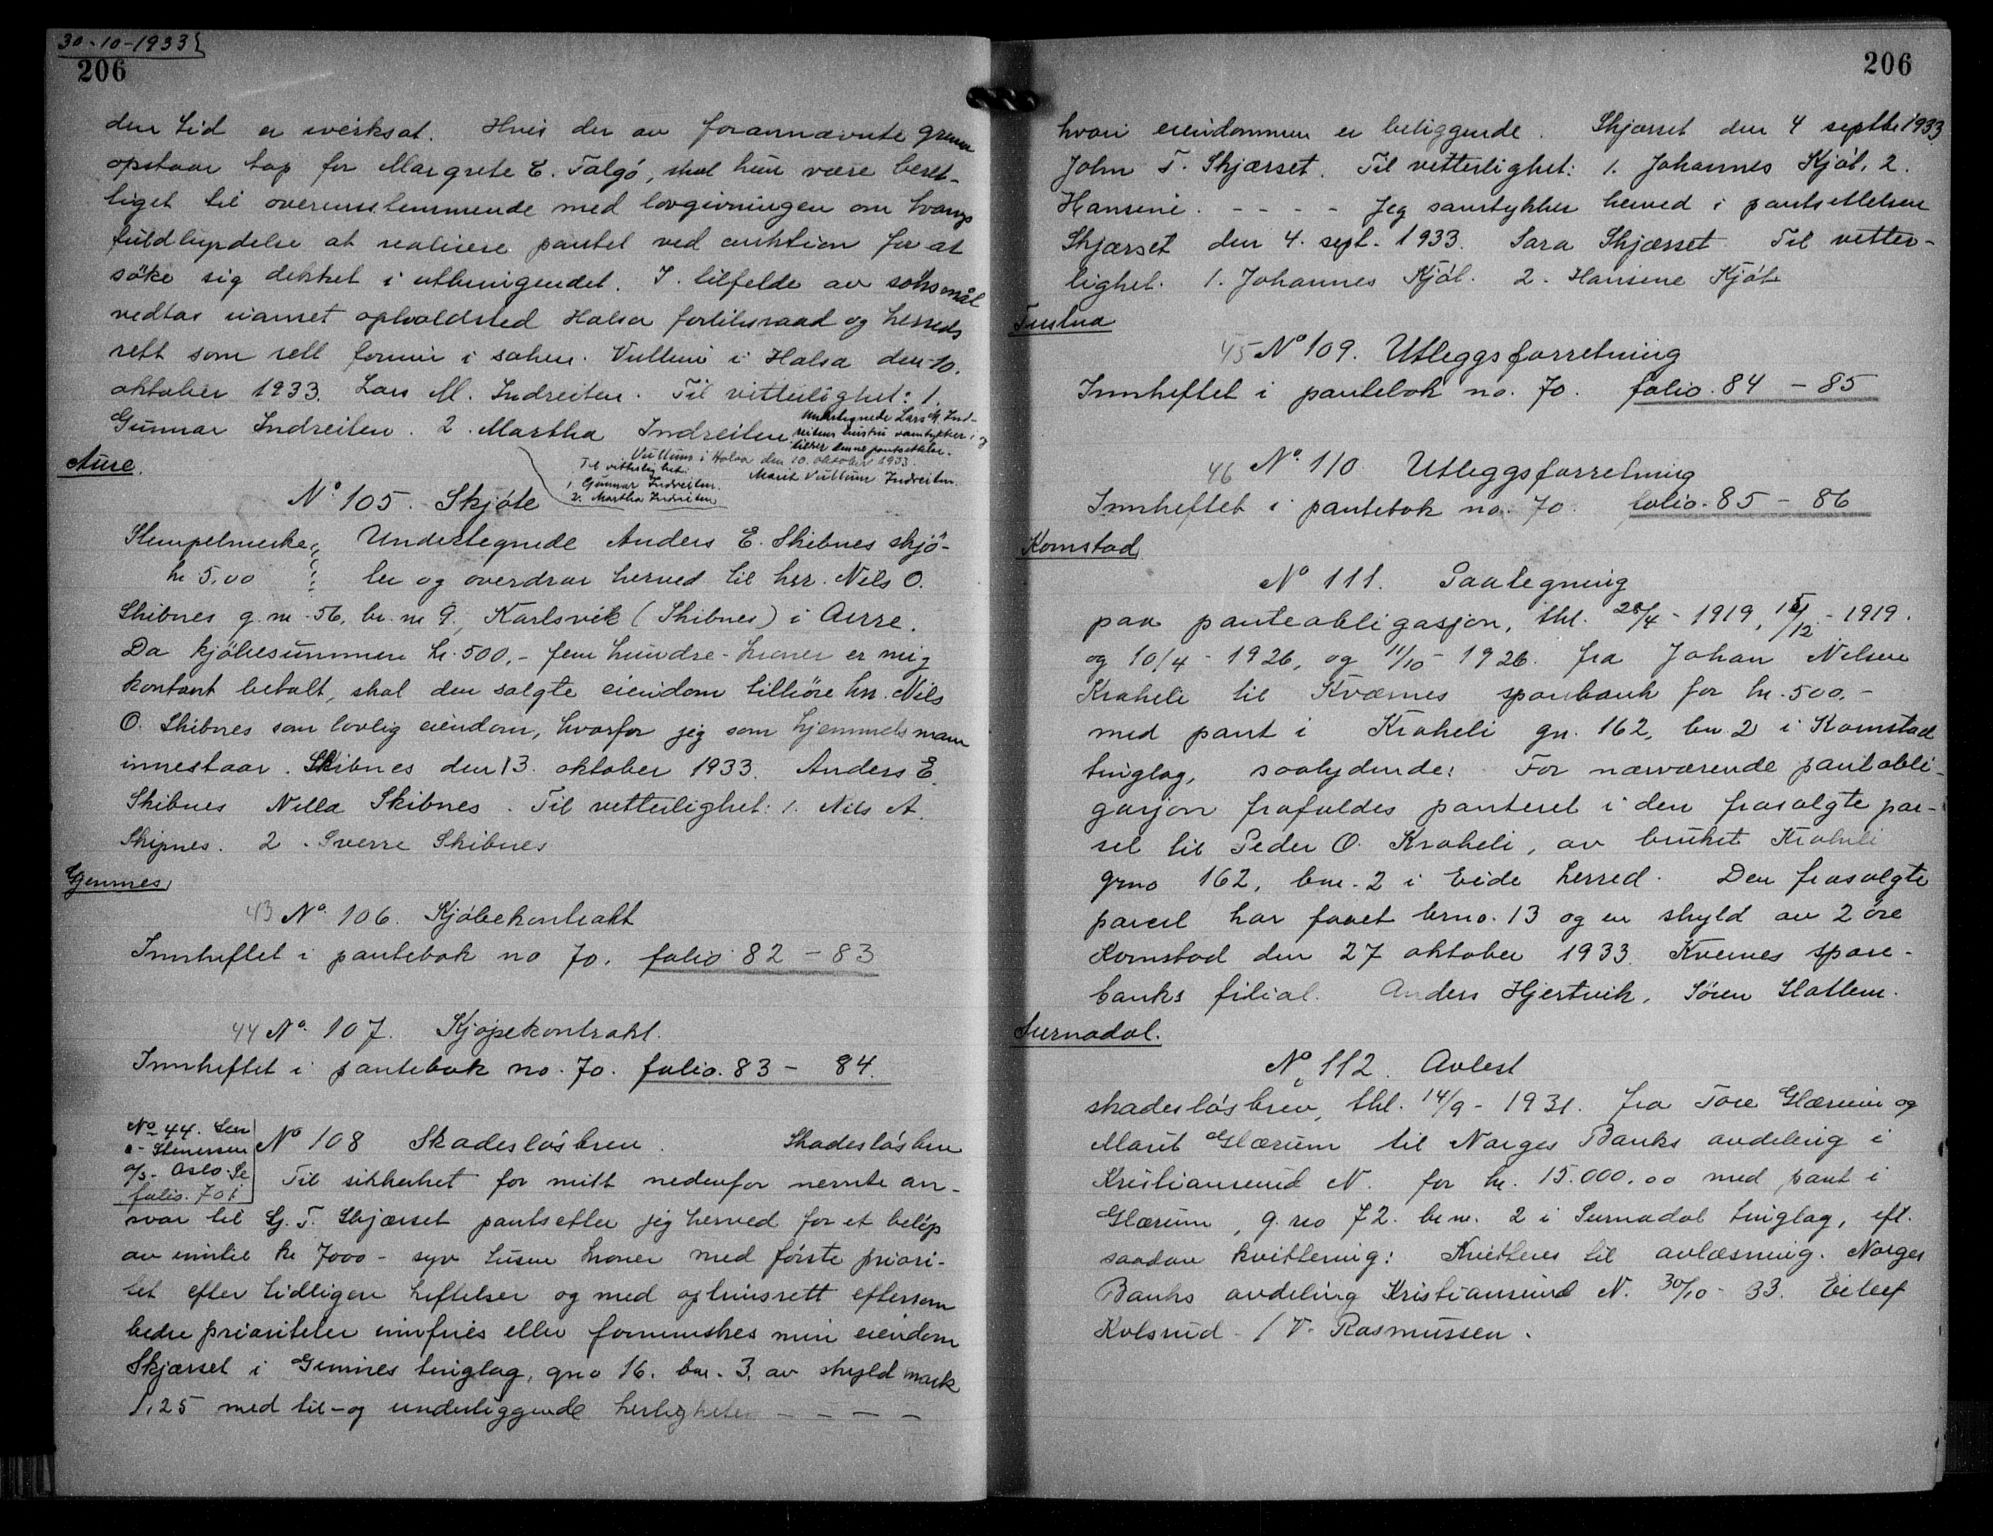 30-10-1933
206
den tid er iverksat. Hvis der av forannævnte grunn
opstaar tap for Margrete E. Talgö, skal hun være beret-
tiget til overensstemmende med lovgivningen om tvangs
fuldbyrdelse at realisere pantet ved auktion for at
söke sig dekket i utbringendet. I tilfelde av söksmål
vedtas uanset opholdsted Halsa forliksraad og herreds
rett som rett forum i saken. Vullum i Halsa den 10.
oktober 1933. Lars M. Indreiten. Til vitterlighet: 1.
Gunnar Indreiten. 2. Martha Indreiten.
Undertegnede Lars M. Ind-
reitens hustru samtykker i og
tiltrer denne pantsettelse.
Vullum i Halsa den 10. oktober 1933.
Marit Vullum Indreiten.
Til vitterlighet:
1. Gunnar Indreiten.
2. Martha Indreiten
Aure.
No 105. Skjöte
Stempelmerke Undertegnede Anders E. Skibnes skjö-
kr 5,00 ter og overdrar herved til hrr. Nils O.
Skibnes g.nr. 56, br.nr 9, Karlsvik (Skibnes) i Aure.
Da kjöbesummen kr. 500,- fem hundre- kroner er mig
kontant betalt, skal den solgte eiendom tilhöre hr. Nils
O. Skibnes som lovlig eiendom, hvorfor jeg som hjemmelsmann
innestaar. Skibnes den 13. oktober 1933. Anders E.
Skibnes Nella Skibnes. Til vetterlighet: 1. Nils A.
Skipnes. 2. Sverre Skibnes
Gjemnes
43 No 106. Kjöbekontrakt
Innheftet i pantebok no 70. folio 82 - 83
44 No. 107. Kjöpekontrakt.
Innheftet i pantebok no. 70. folio. 83 - 84.
No 44. Sen
a/s. Oslo. Se
folio. 701
No 108 Skadeslösbrev. Skadeslösbrev
Til sikkerhet for mitt nedenfor nevnte an-
svar til G. T. Skjærset pantsetter jeg herved for et belöp
av inntil kr 7000 - syv tusen kroner med förste priori-
tet efter tidligere heftelser og med oprinsrett eftersom
bedre prioriteter innfries eller forminskes min eiendom
Skjærset i Gjemnes tinglag, gno 16. bnr. 3. av skyld mark
1,25 med til- og underliggende herligheter - - - -
206
hvori eiendommen er beliggende. Skjærset den 4 septbr 1933
John T. Skjærset. Til vetterlighet: 1. Johannes Kjöl. 2.
Hansine. - - - - Jeg samtykker herved i pantsettelsen
Skjærset den 4. sept. 1933. Sara Skjærset Til vetter-
lighet. 1. Johannes Kjöl. 2. Hansine Kjöl
Tustna
45 No 109. Utleggsforretning
Innheftet i pantebok no. 70. folio. 84 - 85
46 No. 110 Utleggsforretning
Innheftet i pantebok no. 70. folio. 85 - 86
Kornstad
No 111. Paategning
paa panteobligasjon, thl. 28/4 - 1919, 15/12 - 1919.
og 10/4 - 1926, og 11/10 - 1926. fra Johan Nilsen
Kraheli til Kværnes sparbank for kr. 500,-
med pant i Kraheli gn. 162, bn 2 i Kornstad
tinglag, saalydende: For nærværende pantobli-
gasjon frafaldes panteret i den frasolgte par-
sel til Peder O. Kraheli, av bruket Kraheli
gno 162, bnr. 2 i Eide herred. Den frasolgte
parcel har faaet brno. 13 og en skyld av 2 öre
Kornstad den 27 oktober 1933. Kvernes spare-
banks filial. Anders Hjertvik, Sören Slatlem.
Surnadal.
No 112. Avlest
skadeslösbrev, thl. 14/9 - 1931. fra Tore Glærum og
Marit Glærum til Norges Banks avdeling i
Kristiansund N. for kr. 15.000,00 med pant i
Glærum, g.no 72. br.nr. 2 i Surnadal tinglag, eft.
saadan kvittering: Kvitteres til avlæsning. Norges
Banks avdeling Kristiansund N. 30/10 - 33. Eilef
Kolsrud - / V. Rasmussen.